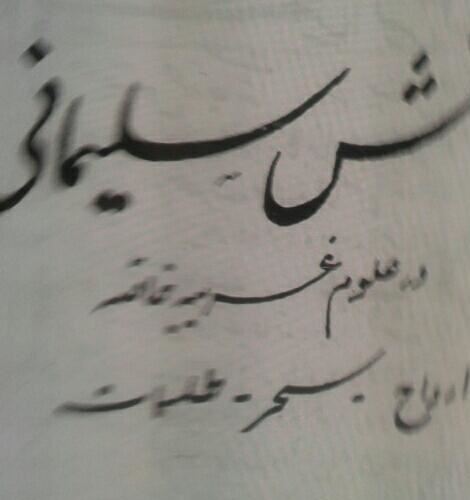 ش سلیمانی
در علوم غریبه خاتمه
ارواح - سحر - طلسمات